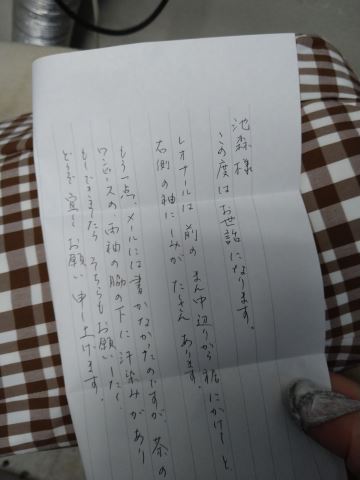 池森様
この度はお世話になります。
レオナールは前のまん中辺りから裾にかけてと、
右側の袖にしみがたくさんあります。
もう一点、メールには書かなかったのですが、茶の
ワンピースの両袖の脇の下に汗染みがあり
もしできましたらそちらもお願いしたく
どうぞ宜しくお願い申し上げます。